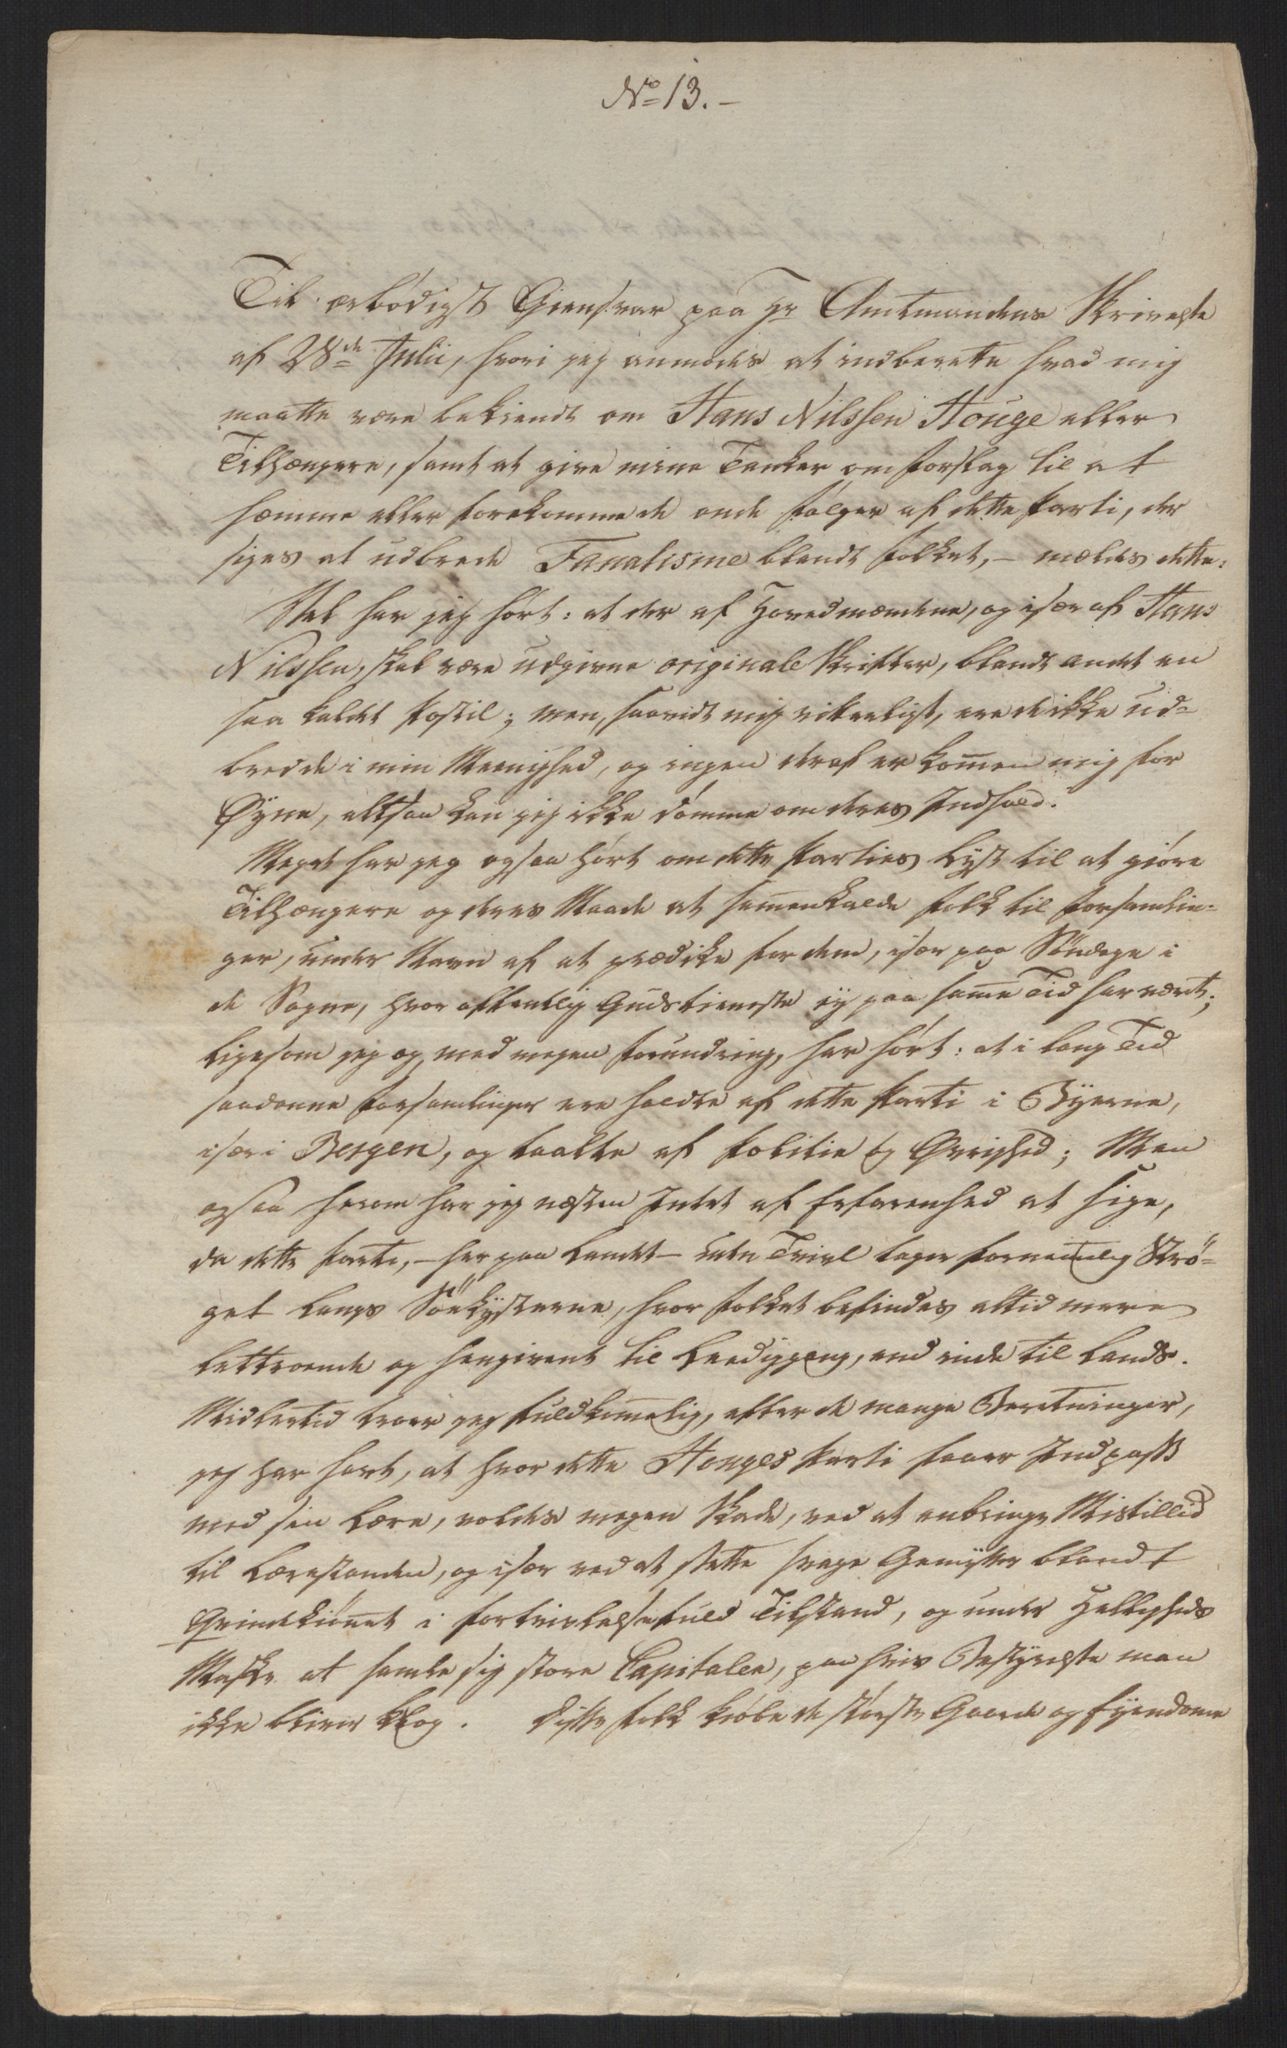 No 13.-
Til ærbödigst Giensvar paa Hr Amtmandens Skrivelse
af 28de Julii, hvori jeg anmodes at indberette hvad mig
maatte være bekiendt om Hans Nilssen Houge eller
Tilhængere, samt at give mine Tanker om Forslag til at
hæmme eller forekomme de onde Fölger af dette Parti, der
siges at udbrede Fanatisme blandt Folket, - meldes dette:
Vel har jeg hört: at der af Hovedmændene, og især af Hans
Nilssen, skal være udgivne originale Skrifter, blandt andet en
saa kaldet Postil; men, saavidt mig vitterligt, ere de ikke ud-
bredde i min Meenighed, og ingen deraf er kommen mig for
Öyne, altsaa kan jeg ikke dömme om deres Indhold.
Meget har jeg ogsaa hört om dette Parties Lyst til at giöre
Tilhængere og deres Maade at sammenkalde Folk til Forsamlin-
ger, under Navn af at prædike for dem, især paa Söndage i
de Sogne, hvor offentlig Gudstieneste ej paa samme Tid har været;
ligesom jeg og, med megen Forundring, har hört: at i lang Tid
saadanne Forsamlinger ere holdte af dette Parti i Byerne,
især i Bergen, og taalte af Politie og Övrighed; Men
ogsaa herom har jeg næsten Intet af Erfarenhed at sige,
da dette Parti, - her paa Landet - uden Tvivl tager fornemmelig Strö-
get langs Söekysterne, hvor Folket befindes altid mere
lettroende og hengivent til Leediggang, end inde til Lands.
Midlertid troer jeg fuldkommelig, efter de mange Beretninger,
jeg har hört, at hvor dette Houges Parti faaer Indpass
med sin Lære, voldes megen Skade, ved at anbringe Mistillid
til Lærestanden, og især ved at sætte svage Gemytter blandt
Qvindekiönnet i fortvivlelsesfuld Tilstand, og under Helligheds
Maske at samle sig store Capitaler, paa hvis Bestyrelse man
ikke bliver klog. Disse Folk kiöbe de störste Gaarde og Eyendomme